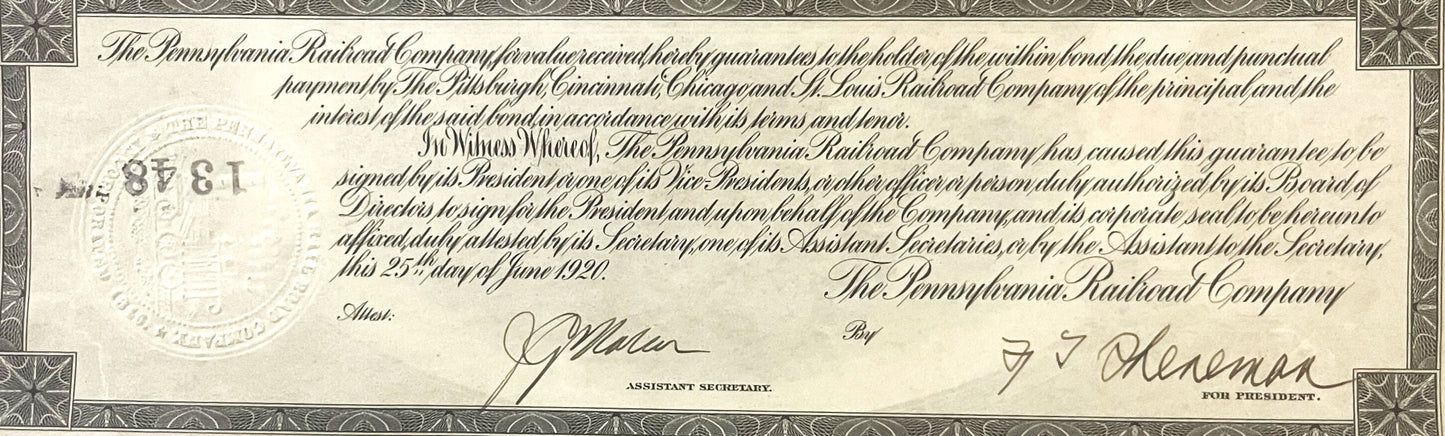 The Pennsylvania Railroad Company, for value received, hereby guarantees to the holder of the within bond, the due and punctual
payment by The Pittsburgh, Cincinnati, Chicago and St. Louis Railroad Company, of the principal and the
interest of the said bond, in accordance with its terms and tenor.
In Witness Whereof, The Pennsylvania Railroad Company has caused this guarantee to be
signed by its President or one of its Vice-Presidents, or other officer or person duly authorized by its Board of
Directors to sign for the President and upon behalf of the Company, and its corporate seal to be hereunto
affixed, duly attested by its Secretary, one of its Assistant Secretaries, or by the Assistant to the Secretary,
this 25th day of June 1920.
The Pennsylvania Railroad Company
1348
Attest:
By
ASSISTANT SECRETARY.
FOR PRESIDENT.